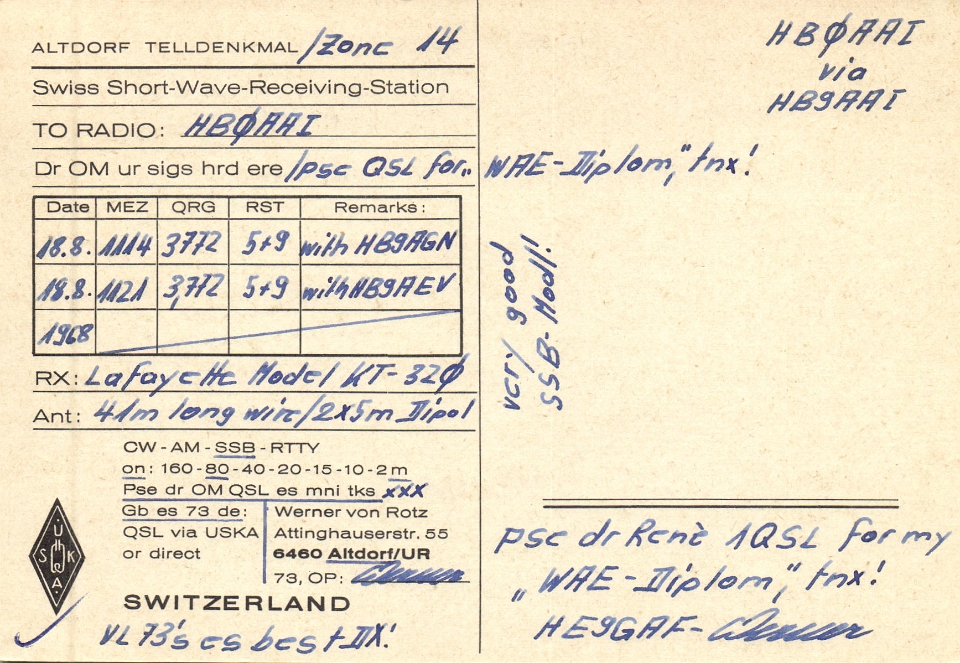 ALTDORF TELLDENKMAL/Zone 14
Swiss Short-Wave-Receiving-Station
TO RADIO: HBØAAI
Dr OM ur sigs hrd ere/psc QSL for „WAE-Diplom", tnx!
Date MEZ QRG RST Remarks:
18.8. 1114 3,772 5+9 with HB9AGN
18.8. 1121 3,772 5+9 with HB9AEV
1968
RX: Lafayette Model KT-32Ø
Ant: 41m long wire/2x5m Dipol
CW-AM-SSB-RTTY
on: 160-80-40-20-15-10-2m
Pse dr OM QSL es mni tks xxx
Gb es 73 de:
QSL via USKA
or direct
Werner von Rotz
Attinghauserstr. 55
6460 Altdorf/UR
73, OP: Werner
USKA
SWITZERLAND
VL 73's es best DX!
HBØAAI
via
HB9AAI
very good
SSB-Modl!
psc dr Renè 1QSL for my
„WAE-Diplom", tnx!
HE9GAF- Werner